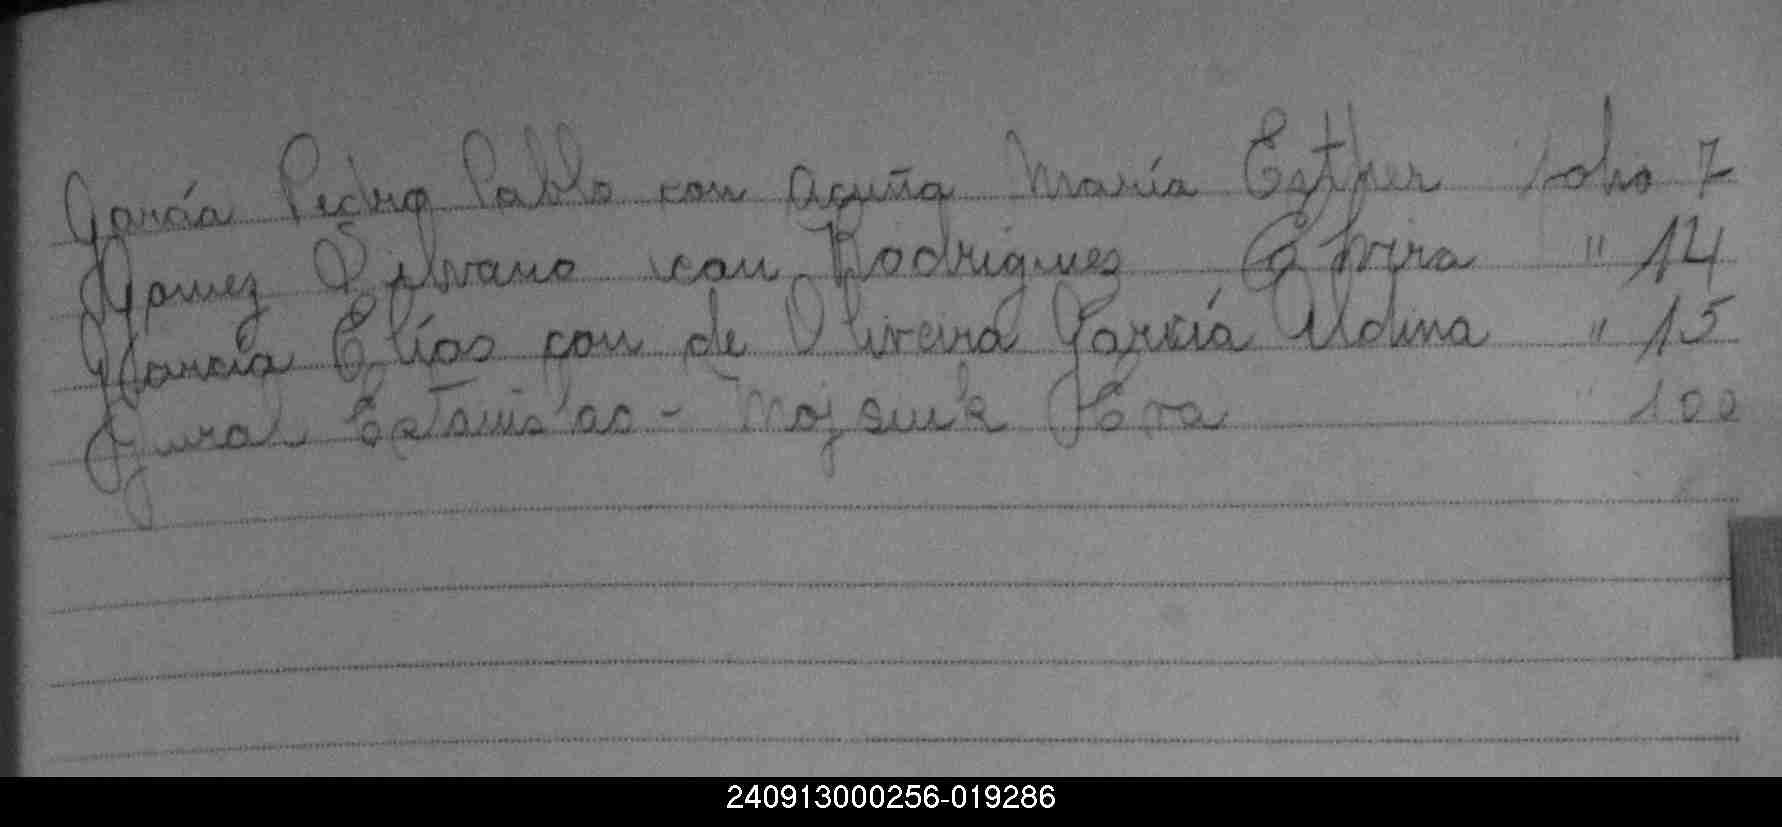 García Pedro Pablo con Acuña María Esther folio 7
Gomez Silvano con Rodriguez " 14
García Elías con de Oliveira García Aldina " 15
Estanislao - Eva 100
240913000256-019286